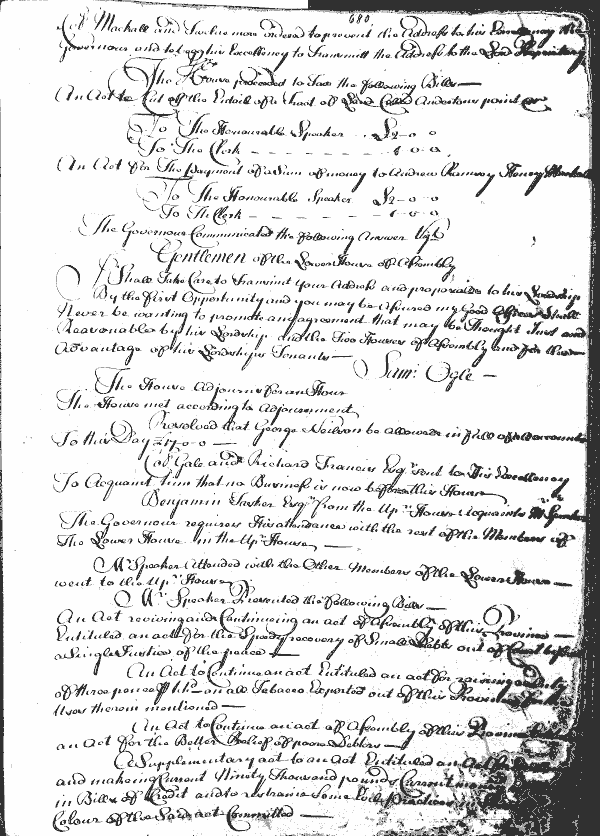 680.
Col.º Mackall and Twelve more ordered to present the Address to his Excellency the
Governour and to beg his Excellency to Transmitt the Address to the Lord Proprietary
The House proceeded to Tax the following Bills —
An Act to Cut off the Entail of a Tract of Land Called Andertons point
To The Honourable Speaker £2 - 0 - 0
To The Clerk — 1 - 0 - 0
An Act for The payment of a Sum of money to Andrew Ramsey Honey
To The Honourable Speaker £2 - 0 - 0
To The Clerk — 1 - 0 - 0
The Governour Communicated the following Answer Viz.t
Gentlemen of the Lower House of Assembly
I Shall Take Care to Transmit your Address and proposals to his Lordship
By the first Opportunity and you may be Assured my Good Offices Shall
Never be wanting to promote an agreement that may be Thought Just and
Reasonable by his Lordship and the Two Houses of Assembly and for the
Advantage of his Lordships Tenants —
Sam: Ogle —
The House Adjourns for an Hour
The House met according to Adjournment
Resolved that George Neilson be allowed in full of
To this Day
Col.º Gale and Richard Francis Esq.r sent to His Excellency
To Acquaint him that no Business is now before this House
Benjamin Tasker Esq.r from the Up.r House acquaints M.r Speaker
The Governour requires His attendance with the rest of the Members of
The Lower House in the Up.r House —
M.r Speaker Attended with the Other Members of the Lower House —
went to the Up.r House
M.r Speaker Presented the following Bills —
An Act reviving and Continueing an act of Assembly of this Province —
Entituled an act for the Speedy recovery of Small Debts out of Court before
a Single Justice of the peace —
An Act to Continue an act Entituled an act for raising a duty
of three pence on all Tobacco Exported out of this Province for the
Uses therein mentioned —
An Act to Continue an act of Assembly of this Province
an Act for the Better Relief of poor Debtors —
A Supplementary act to an Act Entituled an Act for
and making Current Ninety Thousand pounds Current money
in Bills of Credit and to restrain Some Evil practices
Colour of the Said act Committed —